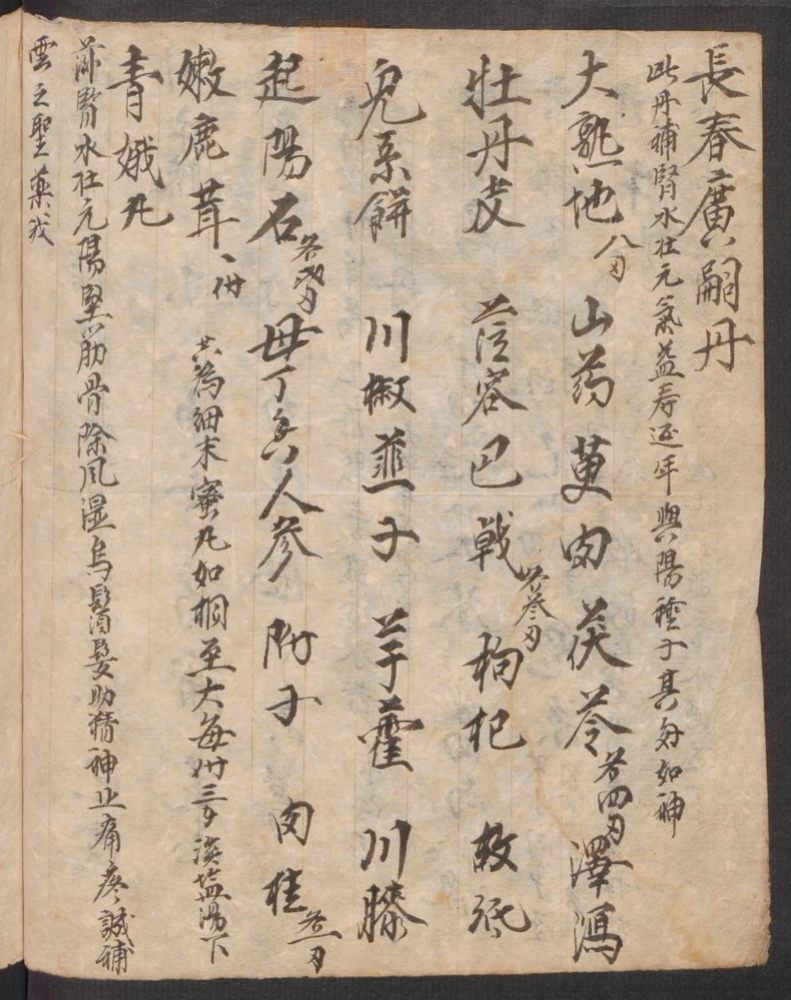 長春廣嗣丹
此丹補腎水壯元氣益壽延年興陽種子其効如神
大熟地 八刄 山药 萸肉 茯苓 各四刄 澤瀉
牡丹皮 苁容 巴戟 各叁刄 枸杞 故紙
兔糸餅 川椒 韮子 羊藿 川膝
起陽石 各 刄 母丁香 人參 附子 肉桂 各一刄
嫩鹿茸 一付 共為細末蜜丸如桐 大每付三 淡盐湯下
青娥丸
滋腎水壯元陽堅筋骨除風湿烏鬚髮助精神止痛疼誠補
雲之聖藥哉